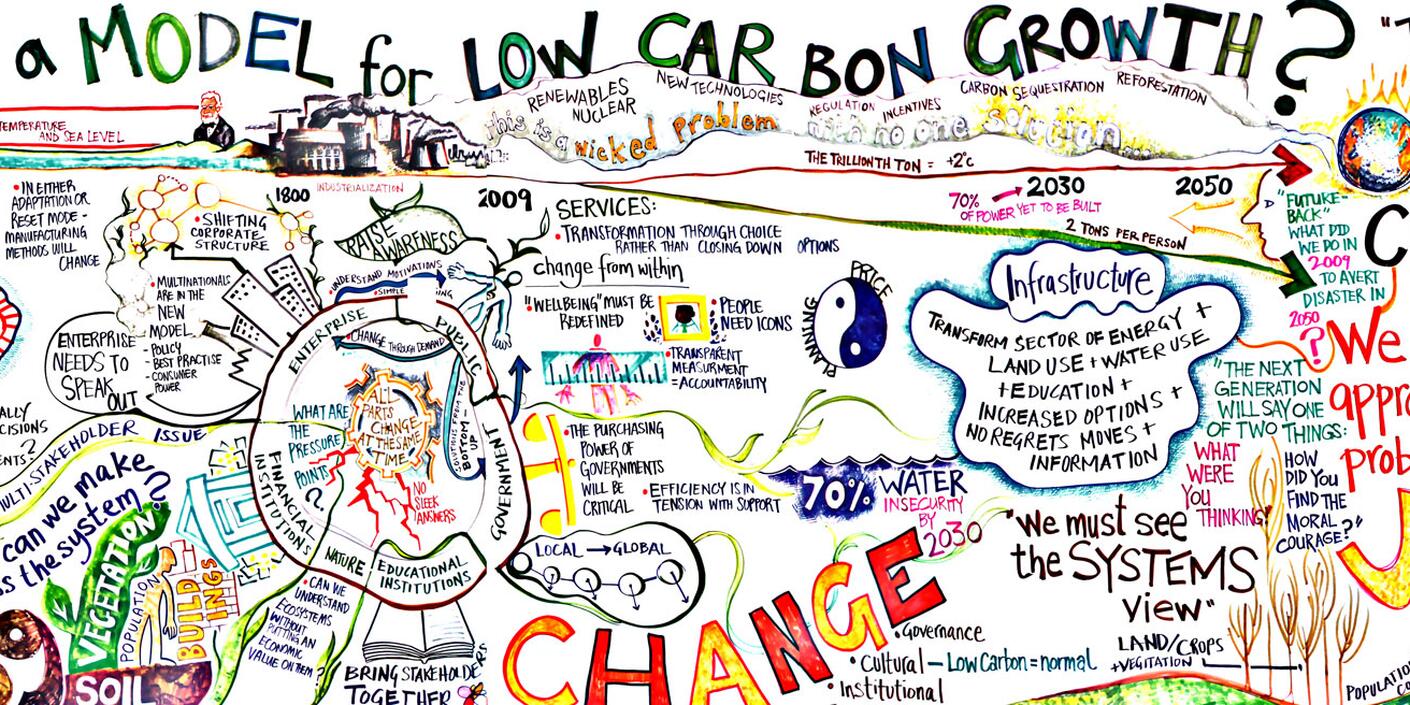 a MODEL for LOW CARBON GROWTH?
TEMPERATURE
AND SEA LEVEL
RENEWABLES
NUCLEAR
NEW TECHNOLOGIES
REGULATION
INCENTIVES
CARBON SEQUESTRATION
REFORESTATION
this is a wicked problem
with no one solution...
THE TRILLIONTH TON = +2°C
1800
INDUSTRIALIZATION
2009
2030
2050
70%
OF POWER YET TO BE BUILT
2 TONS PER PERSON
• IN EITHER
ADAPTATION OR
RESET MODE -
MANUFACTURING
METHODS WILL
CHANGE
• SHIFTING
CORPORATE
STRUCTURE
• MULTINATIONALS
ARE IN THE
NEW
MODEL
- POLICY
- BEST PRACTISE
- CONSUMER
POWER
ENTERPRISE
NEEDS TO
SPEAK
OUT
RAISE
AWARENESS
UNDERSTAND MOTIVATIONS
• SIMPLE
ENTERPRISE
PUBLIC
GOVERNMENT
EDUCATIONAL
INSTITUTIONS
NATURE
FINANCIAL
INSTITUTIONS
• CHANGE THROUGH DEMAND
ALL
PARTS
CHANGE
AT THE SAME
TIME
SOLUTIONS FROM THE
BOTTOM-
UP
WHAT ARE
THE
PRESSURE
POINTS
?
NO
SLEEK
ANSWERS
SERVICES:
• TRANSFORMATION THROUGH CHOICE
RATHER THAN CLOSING DOWN OPTIONS
change from within
• "WELLBEING" MUST BE
REDEFINED
• PEOPLE
NEED ICONS
• TRANSPARENT
MEASURMENT
= ACCOUNTABILITY
PRICE
PLANNING
• THE PURCHASING
POWER OF
GOVERNMENTS
WILL BE
CRITICAL
• EFFICIENCY IS IN
TENSION WITH SUPPORT
LOCAL → GLOBAL
70% WATER
INSECURITY
BY
2030
Infrastructure
TRANSFORM SECTOR OF ENERGY +
LAND USE + WATER USE
+ EDUCATION +
INCREASED OPTIONS +
NO REGRETS MOVES +
INFORMATION
"FUTURE-
BACK"
WHAT DID
WE DO IN
2009
TO AVERT
DISASTER IN
2050
?
"THE NEXT
GENERATION
WILL SAY ONE
OF TWO THINGS:
WHAT
WERE
YOU
THINKING?
HOW
DID YOU
FIND THE
MORAL
COURAGE?"
We
appro
prob
"We must see
the SYSTEMS
view"
LAND/CROPS
+ VEGITATION
CHANGE
• Governance
• Cultural – Low Carbon = normal
• Institutional
MULTI-STAKEHOLDER ISSUE
can we make
the system
?
VEGETATION
POPULATION
BUILD
INGS
SOIL
• CAN WE
UNDERSTAND
ECOSYSTEMS
WITHOUT
PUTTING AN
ECONOMIC
VALUE ON THEM?
BRING STAKEHOLDERS
TOGETHER